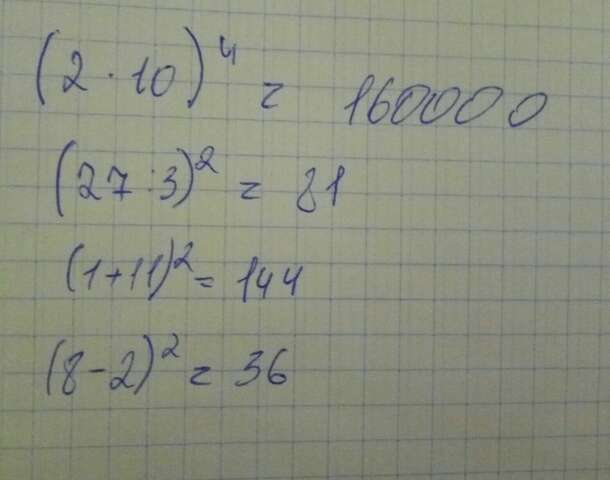 (2·10)⁴ = 160000
(27:3)² = 81
(1+11)² = 144
(8-2)² = 36